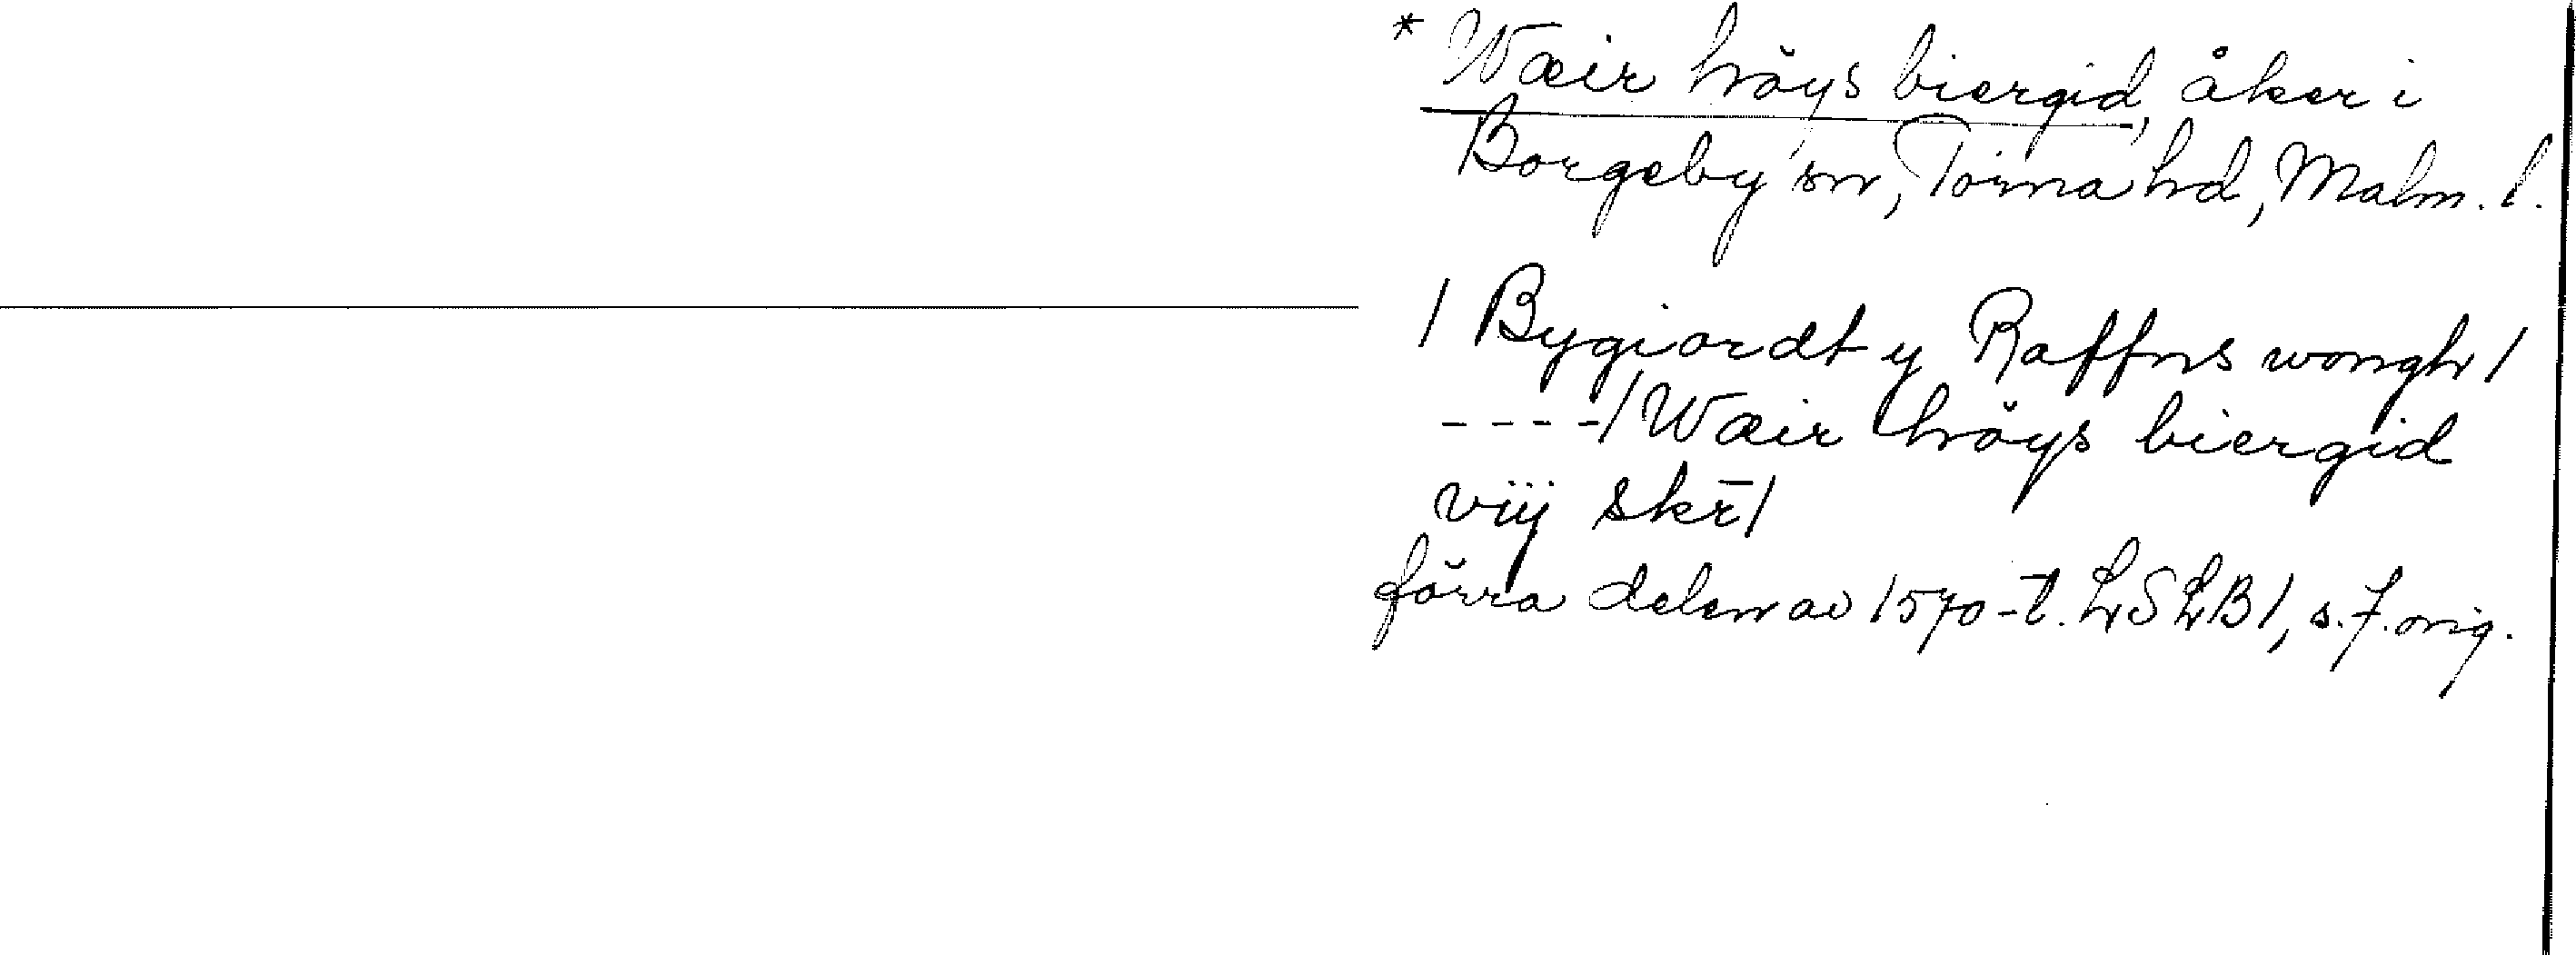 * Wæir höys biergid, åker i
Borgeby sn, Torna hd, Malm. l.
/ Bygiordt y Raffns wongh /
----/ Wæir höys biergid
viij skr̄ /
förra delen av 1570-t. LSLB 1, s. 7. orig.